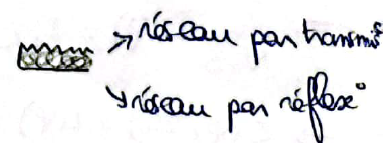 → réseau par transmi°
↘ réseau par réflex°